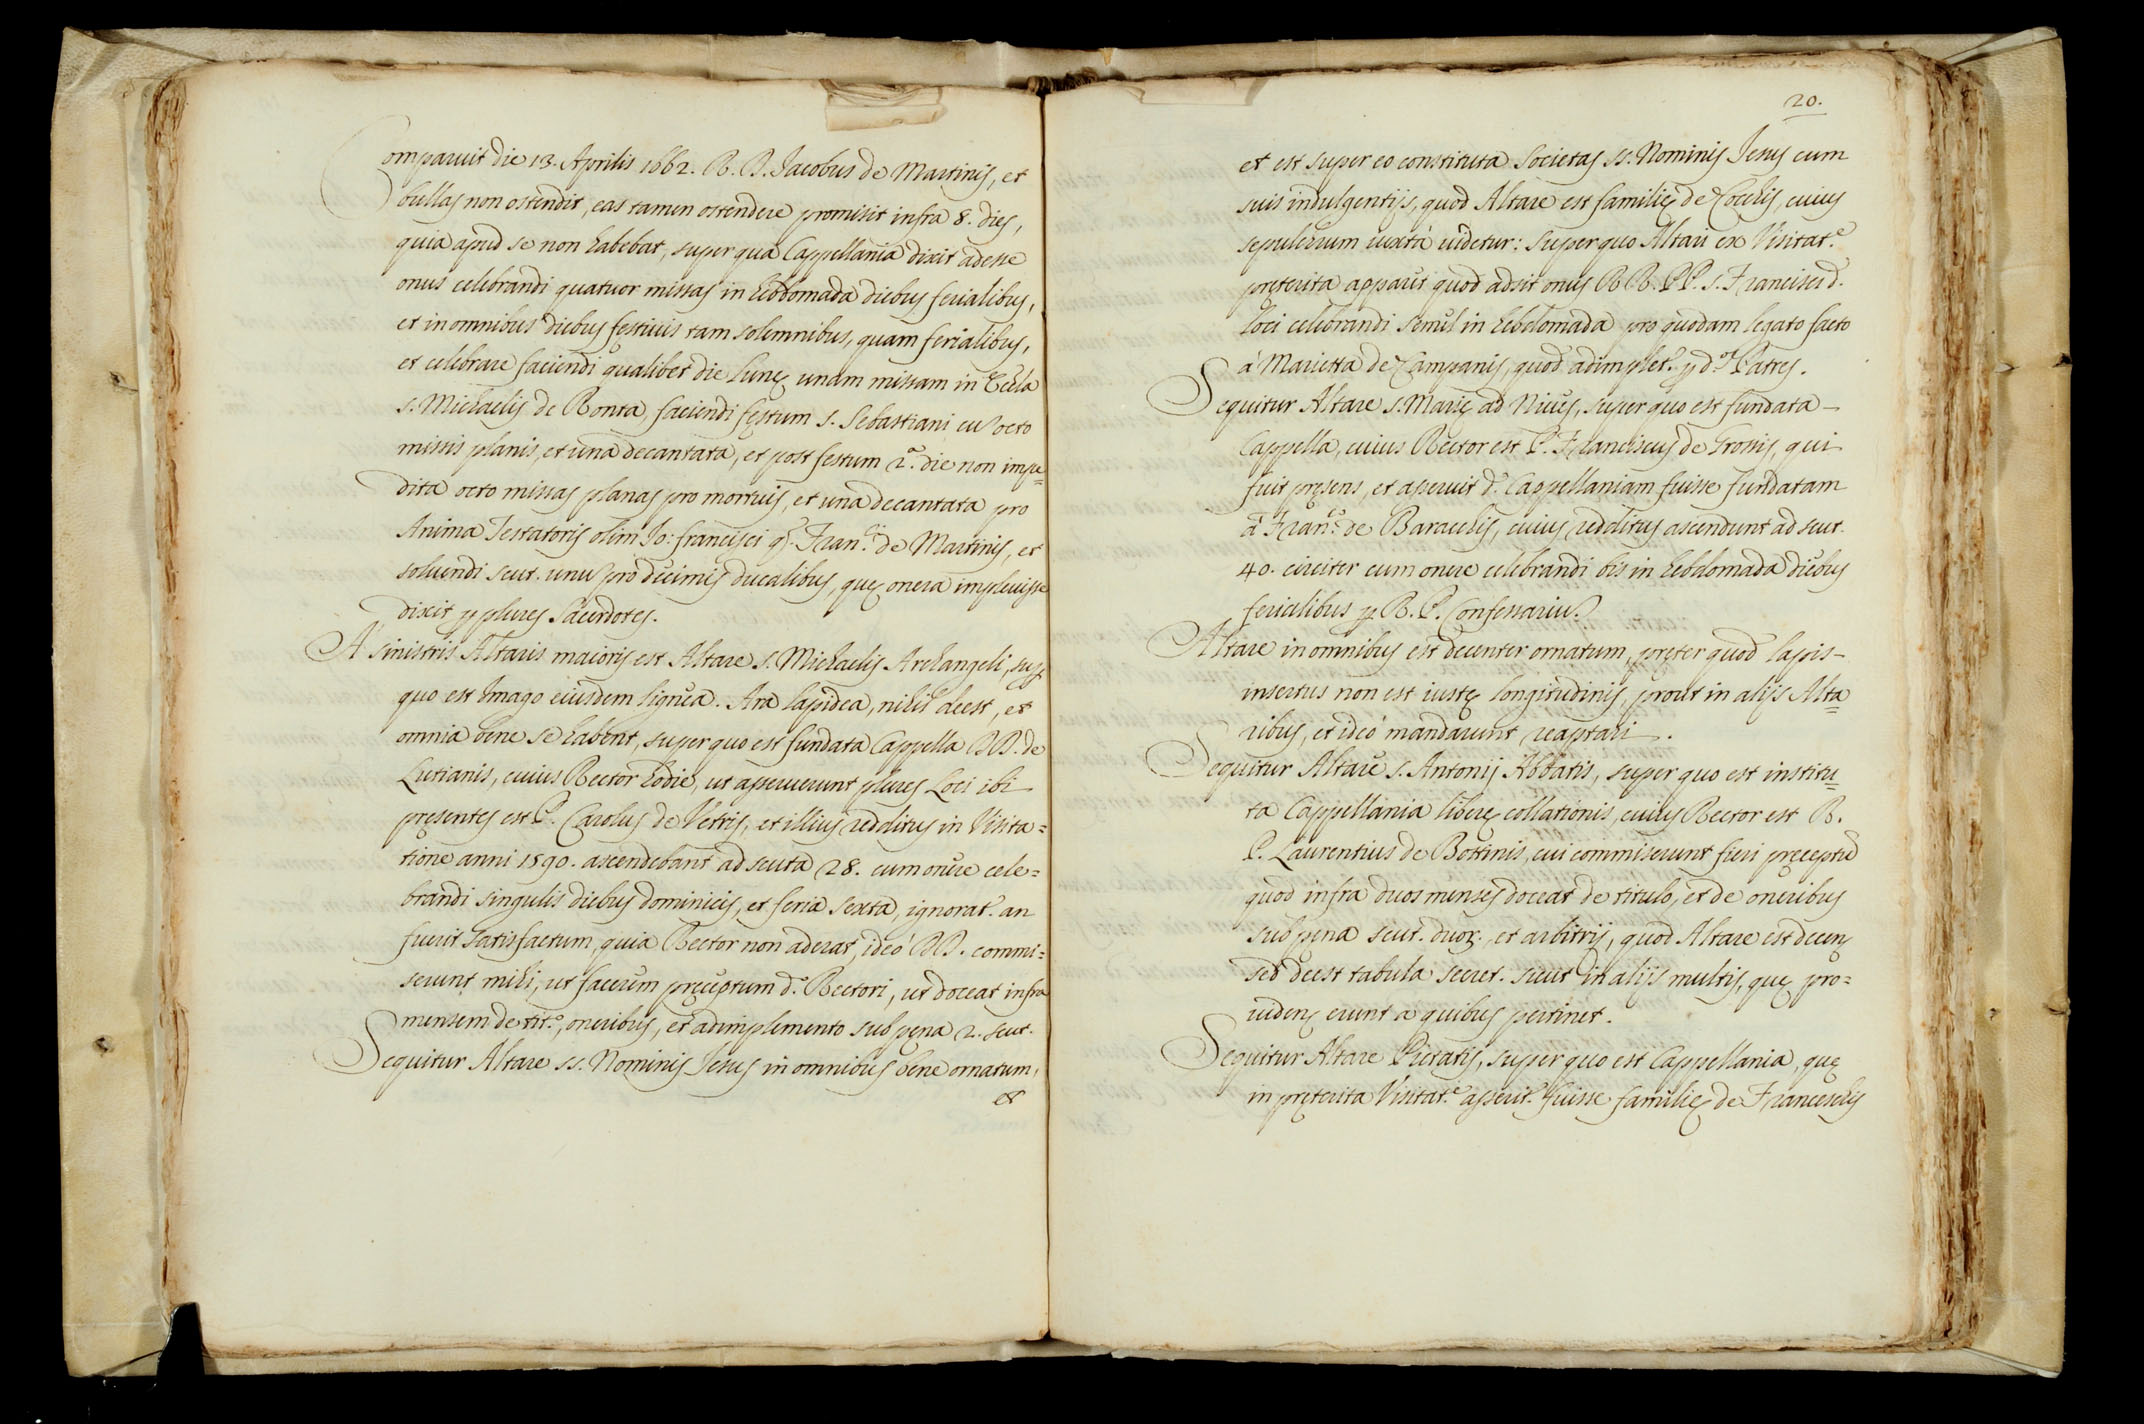 Comparuit die 13. Aprilis 1662. R. D. Jacobus de Martinis, et
bullas non ostendit, eas tamen ostendere promisit infra 8. dies,
quia apud se non habebat, super qua Cappellania dixit adesse
onus celebrandi quatuor missas in hebdomada diebus ferialibus,
et in omnibus diebus festiuis tam solemnibus, quam ferialibus,
et celebrare faciendi qualibet die lunę unam missam in Eccla
s. Michaelis de Ronta, faciendi festum s. Sebastiani cu octo
missis planis, et una decantata, et post festum 2.a die non impe=
dita octo missas planas pro mortuis, et una decantata pro
Anima Testatoris olim Jo: francisci q. Fran.ci de Martinis, et
soluendi scut. unu pro decimis ducalibus, quę onera impleuisse
dixit p plures Sacerdotes.
A sinistris Altaris maioris est Altare s. Michaelis Archangeli, sup
quo est Imago eiusdem lignea. Ara lapidea, nihil deest, et
omnia bene se habent, super quo est fundata Cappella DD. de
Lutianis, cuius Rector hodie, ut asseruerunt plures Loci ibi
pręsentes est P. Carolus de Vetris, et illius redditus in Visita=
tione anni 1590. ascendebant ad scuta 28. cum onere cele=
brandi singulis diebus dominicis, et feria sexta, ignorat. an
fuerit satisfactum, quia Rector non aderat, ideò DD. commi=
serunt mihi, ut facerem pręceptum d.o Rectori, ut doceat infra
mensem de tit.o, oneribus, et adimplemento sub pęna 2. scut.
Sequitur Altare ss. Nominis Jesus in omnibus bene ornatum,
et
20.
et est super eo constituta Societas ss. Nominis Jesus cum
suis indulgentijs, quod Altare est familię de Cocchis, cuius
sepulcrum iuxtà uidetur: super quo Altari ex Visitat.e
pręterita apparet quod adsit onus R R. P P. s. Francisci d.
loci celebrandi semel in hebdomada pro quodam legato facto
à Marietta de Campanis, quod adimplet. p d.os Patres.
Sequitur Altare s. Marię ad Niues, super quo est fundata
Cappella, cuius Rector est P. Franciscus de Grossis, qui
fuit pręsens, et aseruit d. Cappellaniam fuisse fundatam
à Fran.co de Barucchis, cuius redditus ascendunt ad scut.
40. circiter cum onere celebrandi bis in hebdomada diebus
ferialibus p R. P. Confessariu.
Altare in omnibus est decenter ornatum, pręter quod lapis
insertus non est iustę longitudinis, prout in alijs Alta=
ribus, et ideò mandarunt reaptari.
Sequitur Altare s. Antonij Abbatis, super quo est institu=
ta Cappellania liberę collationis, cuius Rector est R.
P. Laurentius de Bottinis, cui commiserunt fieri pręceptu
quod infra duos menses doceat de titulo, et de oneribus
sub pęna scut. duor. et arbitrij, quod Altare est decens
sed deest tabula secret. sicut in alijs multis, quę pro=
uidenę erunt a quibus pertinet.
Sequitur Altare Pietatis, super quo est Cappellania, quę
in pręterita Visitat.e asserit. fuisse familię de Franceschis